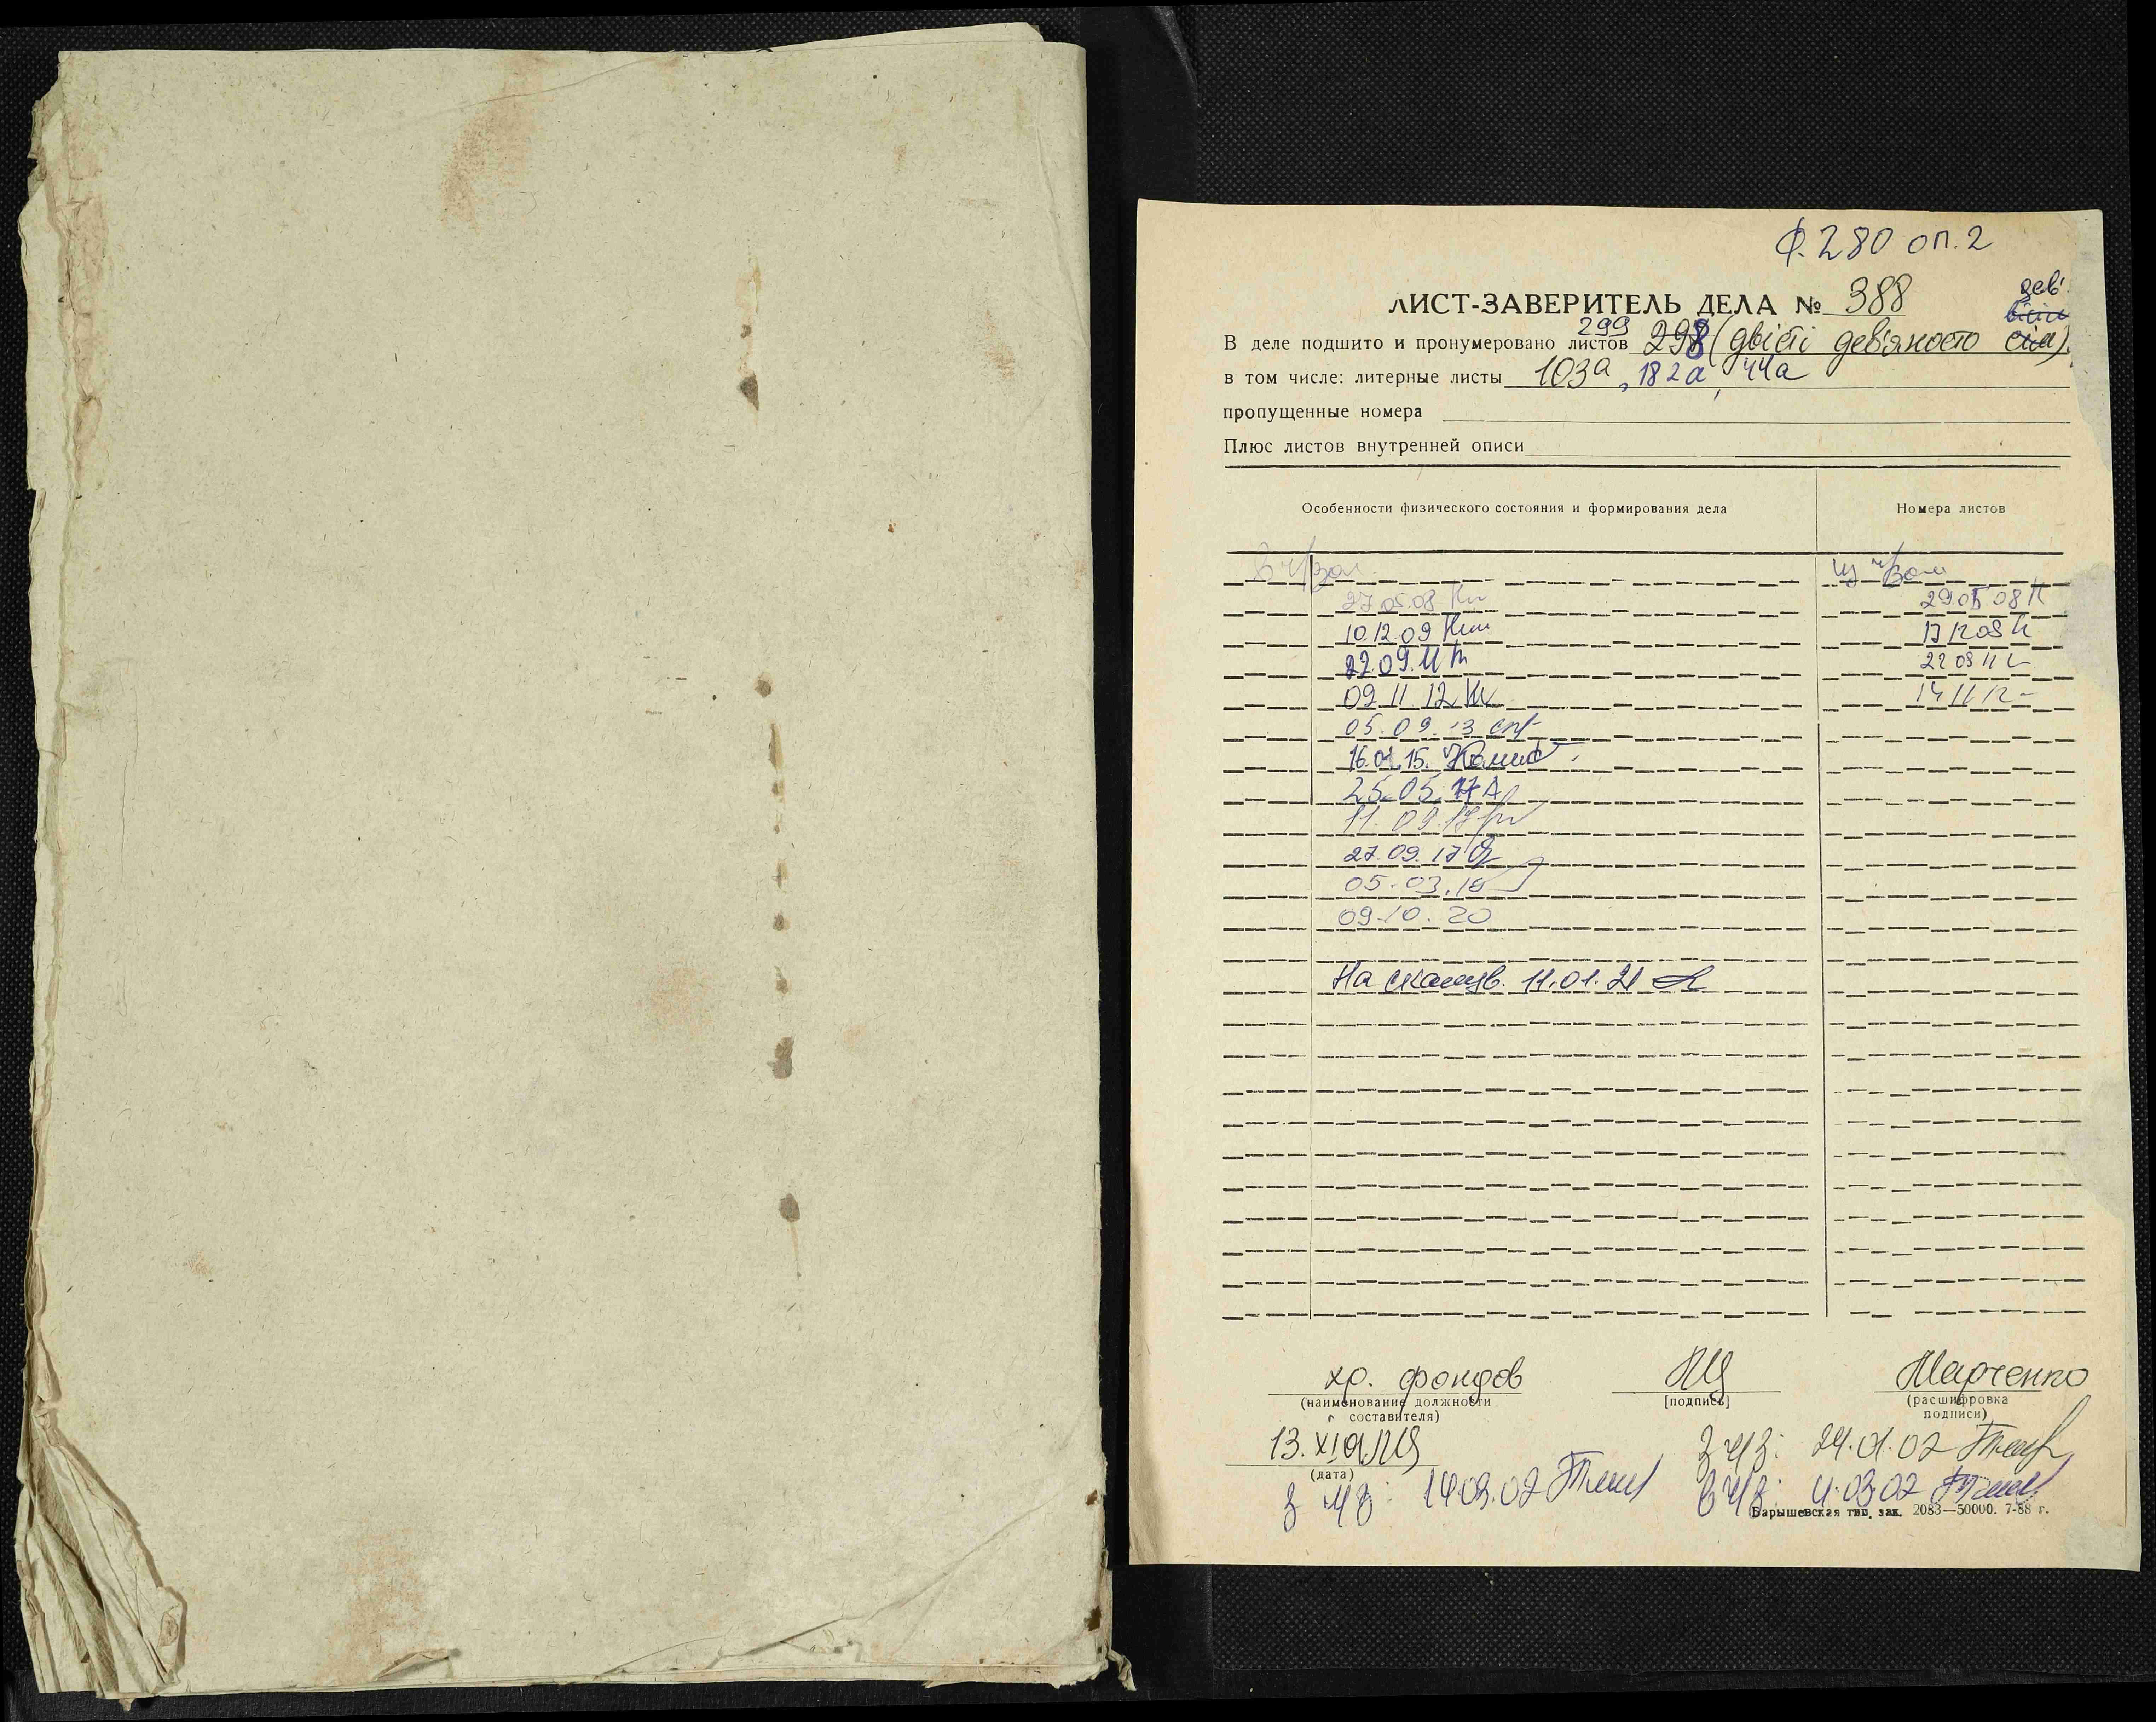 Ф. 280 оп. 2
ЛИСТ-ЗАВЕРИТЕЛЬ ДЕЛА № 388
дев'
вісім
299
В деле подшито и пронумеровано листов 298 (двісті дев'яносто сім)
в том числе: литерные листы 103а, 182а, 44а
пропущенные номера
Плюс листов внутренней описи
Особенности физического состояния и формирования дела
Номера листов
27.05.08
29.05.08
10.12.09
17 12 09
22.09.11
22 09 11
09 11 12
14 11 12
05.09.13
16.01.15.
25.05.17
11.09.17
27.09.17
05.03.18
09.10.20
На сканув. 11.01.21
хр. фондов
Марченко
(наименование должности
составителя)
[подпись]
(расшифровка
подписи)
13.XI 91
(дата)
З ч/з: 24.01.02
З ч/з: 14.03.02
В ч/з: 11.03.02
Барышевская тип. зак. 2083—50000. 7-88 г.